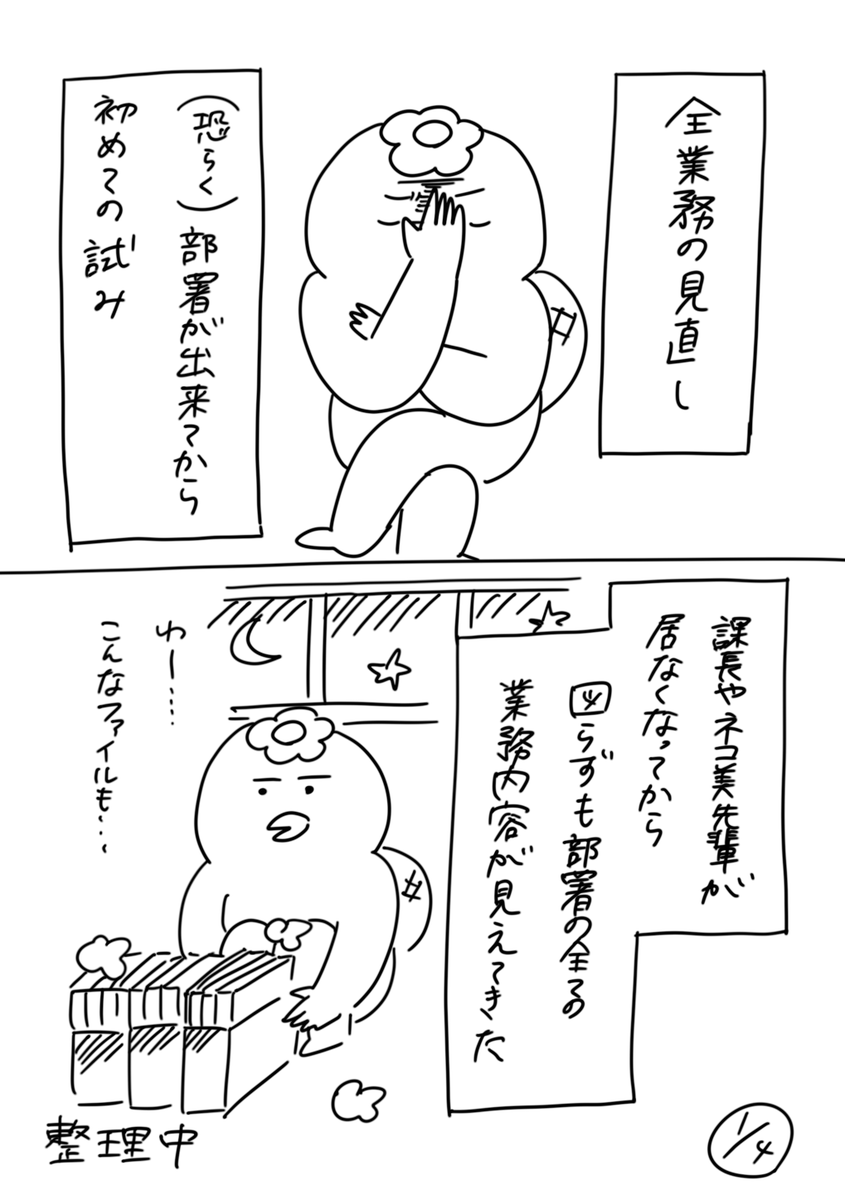 全業務の見直し
(恐らく)部署が出来てから
初めての試み
課長やネコ美先輩が
居なくなってから
図らずも部署の全ての
業務内容が見えてきた
わー……
こんなファイルも…、
整理中
1/4